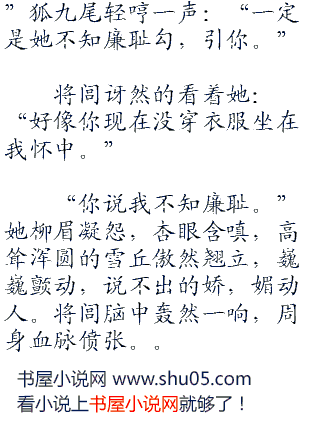 ”狐九尾轻哼一声：“一定
是她不知廉耻勾，引你。”
将闾讶然的看着她：
“好像你现在没穿衣服坐在
我怀中。”
“你说我不知廉耻。”
她柳眉凝怨，杏眼含嗔，高
耸浑圆的雪丘傲然翘立，巍
巍颤动，说不出的娇，媚动
人。将闾脑中轰然一响，周
身血脉偾张。。
书屋小说网 www.shu05.com
看小说上书屋小说网就够了！